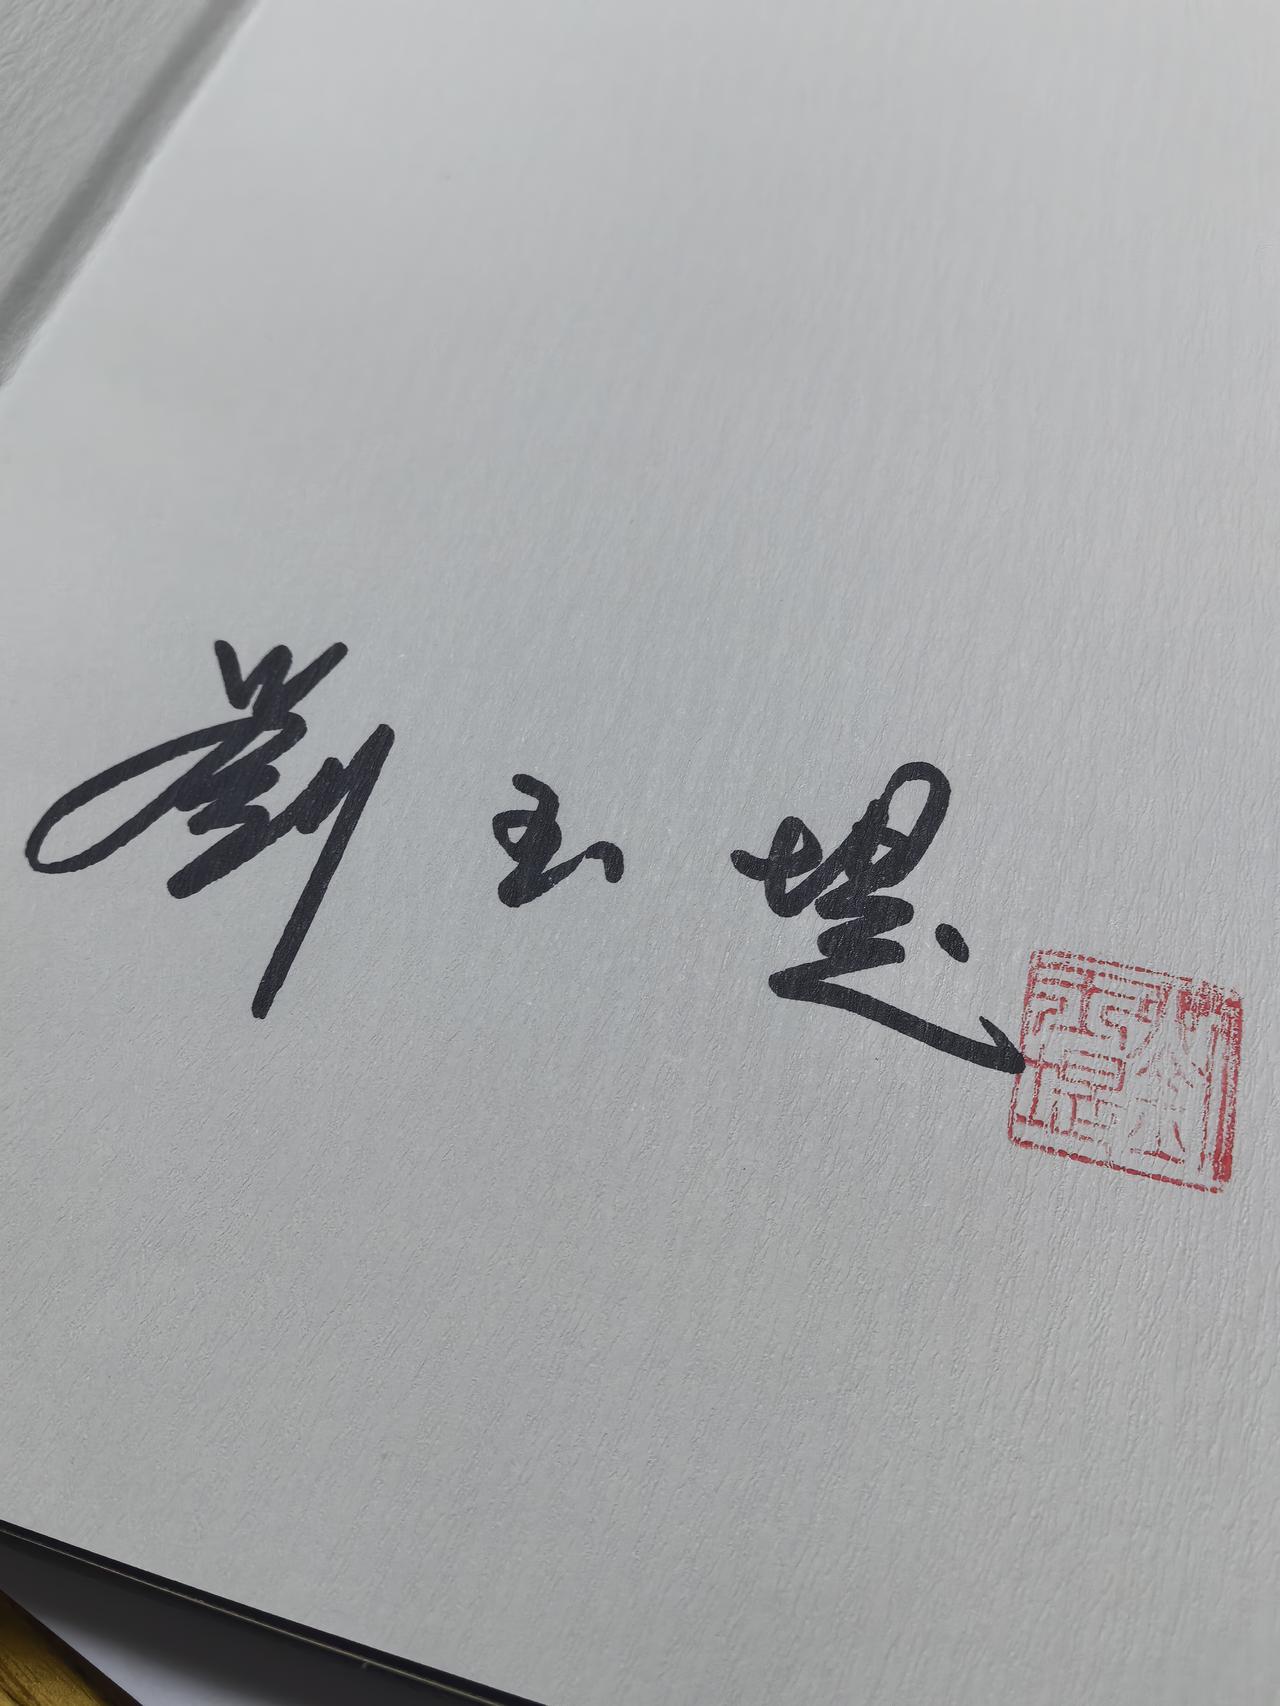 劉玉堤